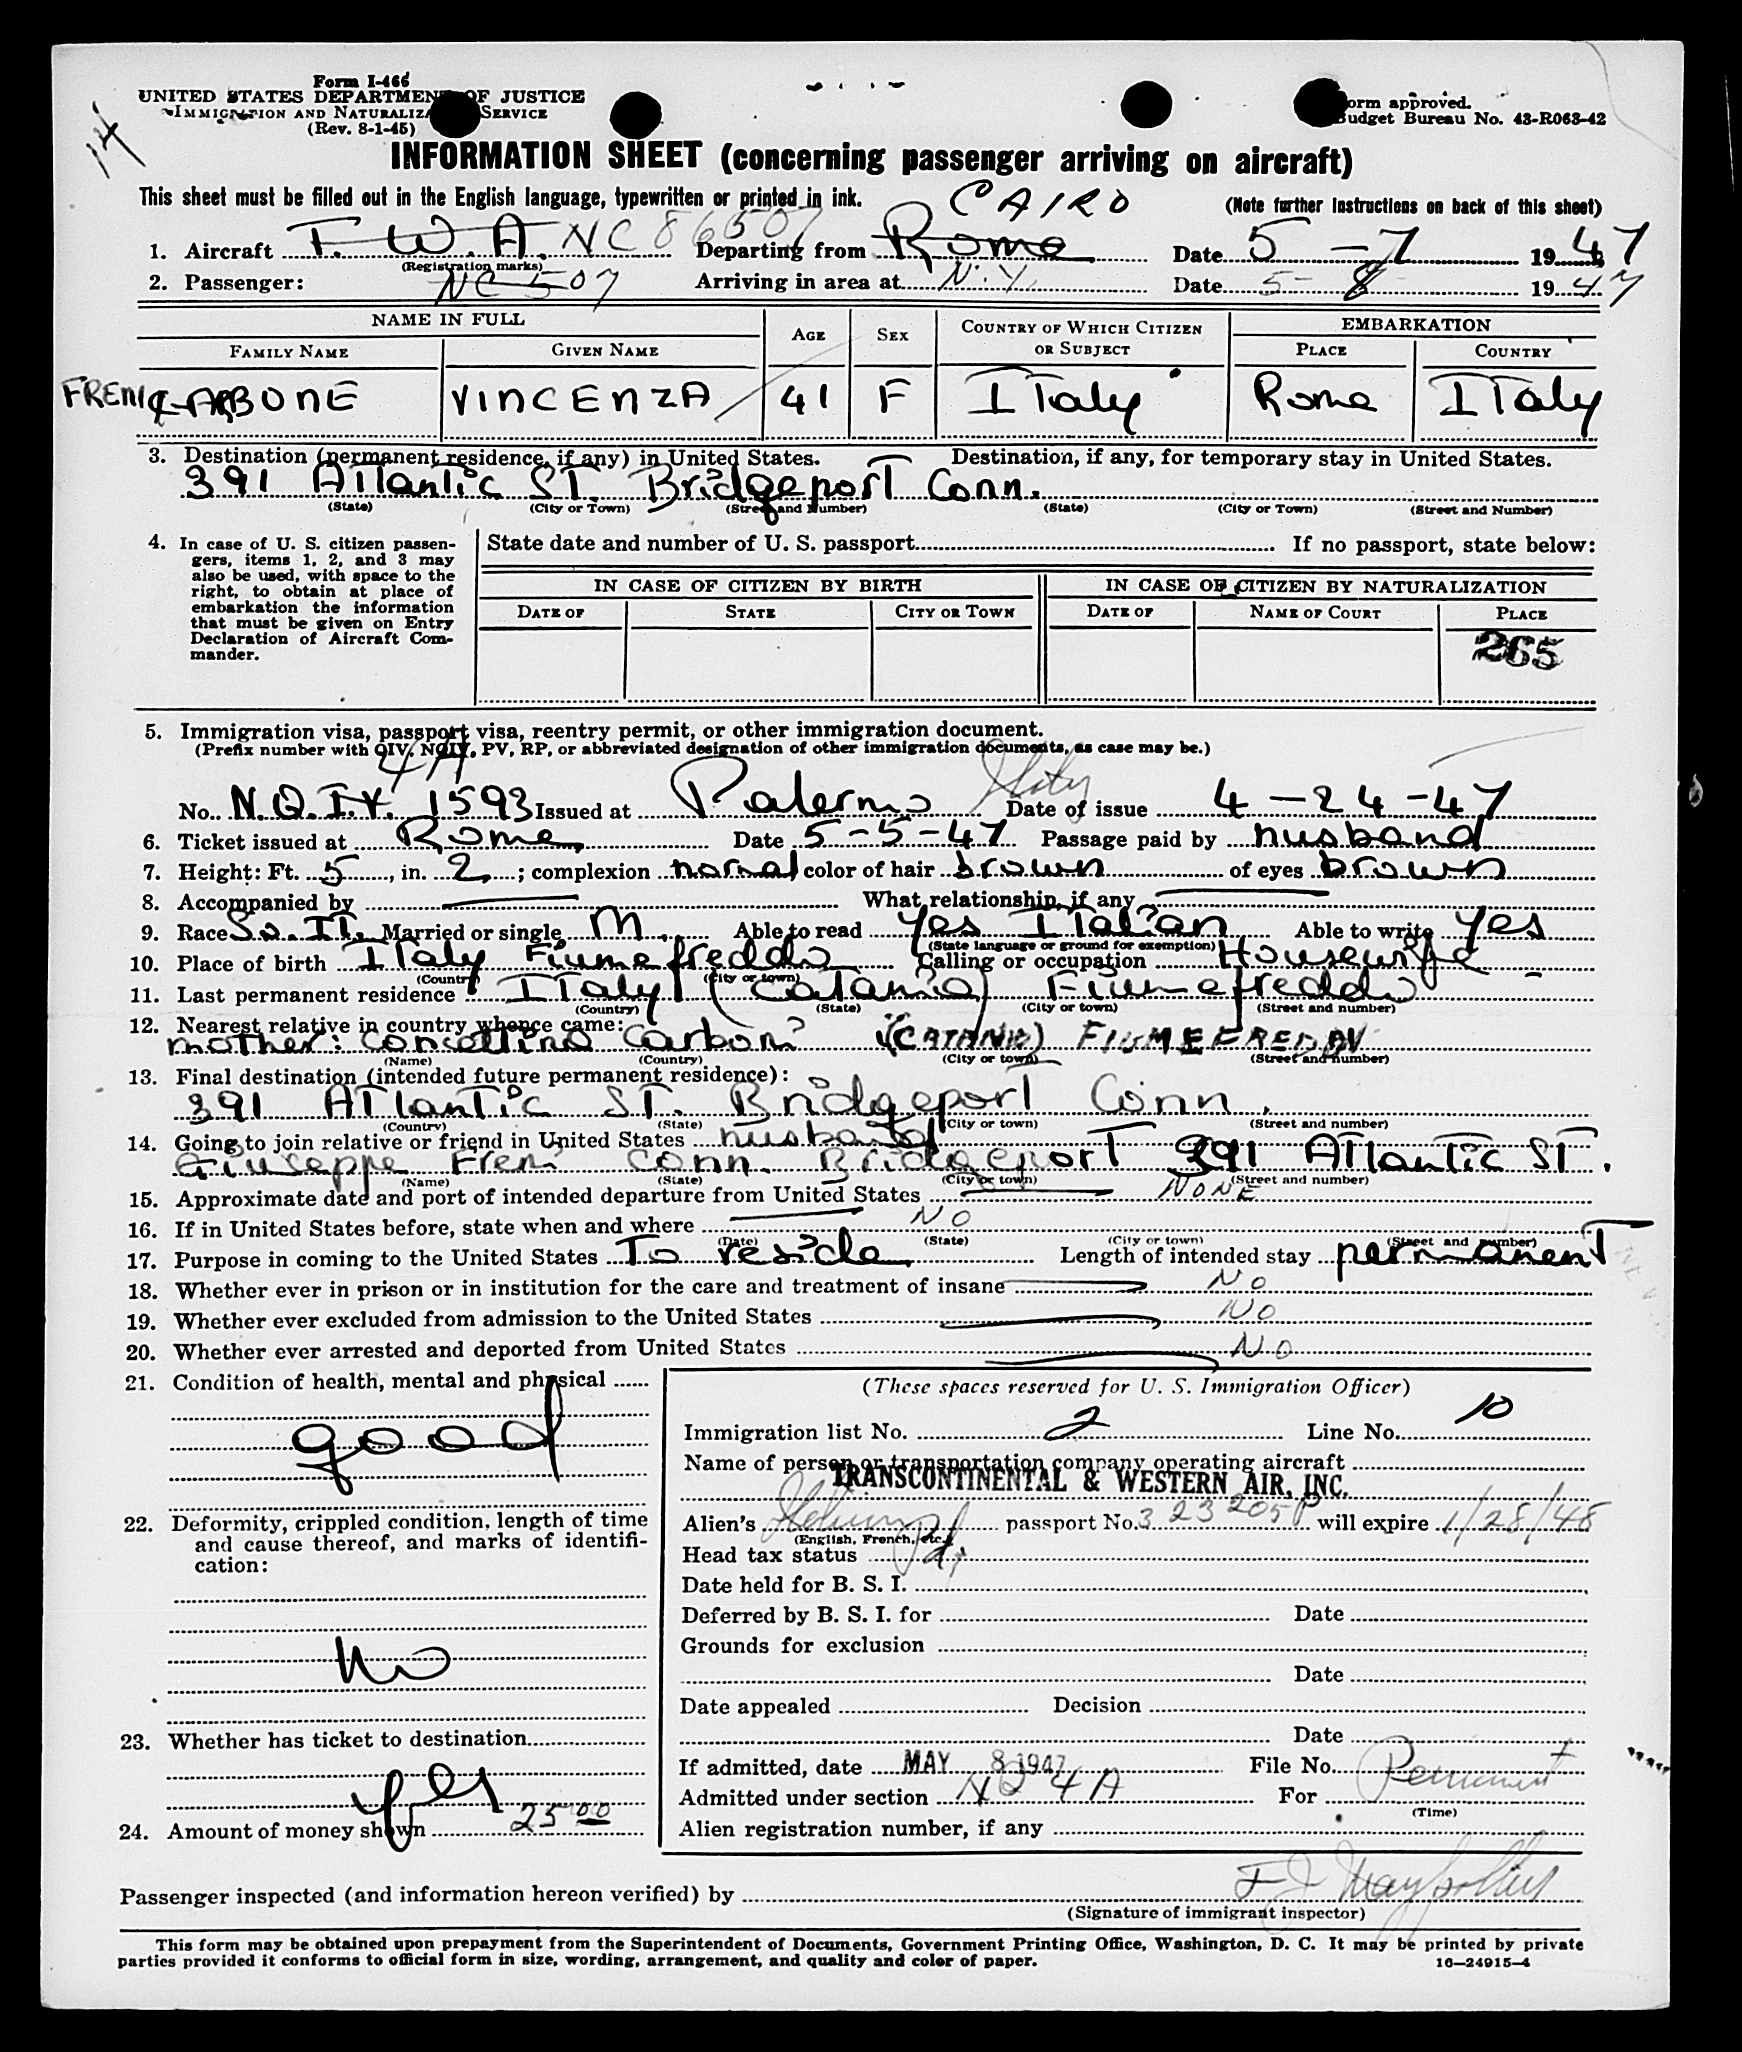 Form I-466
UNITED STATES DEPARTMENT OF JUSTICE
IMMIGRATION AND NATURALIZATION SERVICE
(Rev. 8-1-45)
14
Form approved.
Budget Bureau No. 43-R063-42
INFORMATION SHEET (concerning passenger arriving on aircraft)
This sheet must be filled out in the English language, typewritten or printed in ink.
CAIRO
(Note further instructions on back of this sheet)
1. Aircraft T. W. A. NC 86507 Departing from Rome Date 5-7 1947
(Registration marks)
2. Passenger: NC 507 Arriving in area at N.Y. Date 5-8 1947
NAME IN FULL AGE SEX COUNTRY OF WHICH CITIZEN OR SUBJECT EMBARKATION
FAMILY NAME GIVEN NAME PLACE COUNTRY
FRENI CARBONE VINCENZA 41 F ITaly Rome ITaly
3. Destination (permanent residence, if any) in United States. Destination, if any, for temporary stay in United States.
391 ATlantic ST. BridgeporT Conn.
(State) (City or Town) (Street and Number) (State) (City or Town) (Street and Number)
4. In case of U. S. citizen passengers, items 1, 2, and 3 may also be used, with space to the right, to obtain at place of embarkation the information that must be given on Entry Declaration of Aircraft Commander.
State date and number of U. S. passport If no passport, state below:
IN CASE OF CITIZEN BY BIRTH IN CASE OF CITIZEN BY NATURALIZATION
DATE OF STATE CITY OR TOWN DATE OF NAME OF COURT PLACE
265
5. Immigration visa, passport visa, reentry permit, or other immigration document.
(Prefix number with QIV, NQIV, PV, RP, or abbreviated designation of other immigration documents, as case may be.)
4A
No. N.Q.I.V. 1593 Issued at Palermo Italy Date of issue 4-24-47
6. Ticket issued at Rome Date 5-5-47 Passage paid by husband
7. Height: Ft. 5, in. 2; complexion normal color of hair brown of eyes brown
8. Accompanied by What relationship, if any
9. Race So. IT. Married or single M. Able to read Yes ITalian Able to write Yes
(State language or ground for exemption)
10. Place of birth ITaly Fiumefreddo Calling or occupation Housewife
(Country) (City or town)
11. Last permanent residence ITaly (CaTania) Fiumefreddo
(Country) (State) (City or town) (Street and number)
12. Nearest relative in country whence came:
mother: Concettina Carboni (CATANIA)
(Name) (Country) (City or town) (Street and number)
13. Final destination (intended future permanent residence):
391 ATlanTic ST. BridgeporT Conn.
(Country) (State) (City or town) (Street and number)
14. Going to join relative or friend in United States husband
Giuseppe Freni Conn. BridgeporT 391 ATlanTic ST.
(Name) (State) (City or town) (Street and number)
15. Approximate date and port of intended departure from United States NONE
16. If in United States before, state when and where NO
(Date) (State) (City or town) (Street and number)
17. Purpose in coming to the United States To reside Length of intended stay permanenT
18. Whether ever in prison or in institution for the care and treatment of insane NO
19. Whether ever excluded from admission to the United States NO
20. Whether ever arrested and deported from United States NO
21. Condition of health, mental and physical
good
22. Deformity, crippled condition, length of time and cause thereof, and marks of identification:
No
23. Whether has ticket to destination
yes
24. Amount of money shown 25 00
(These spaces reserved for U. S. Immigration Officer)
Immigration list No. 2 Line No. 10
Name of person or transportation company operating aircraft
TRANSCONTINENTAL & WESTERN AIR, INC.
Alien's passport No. 323205P will expire 1/28/48
(English, French, etc.)
Head tax status Pd.
Date held for B. S. I.
Deferred by B. S. I. for Date
Grounds for exclusion
Date
Date appealed Decision
Date
If admitted, date MAY 8 1947 File No.
Admitted under section NQ 4A For Permanent
(Time)
Alien registration number, if any
Passenger inspected (and information hereon verified) by
(Signature of immigrant inspector)
This form may be obtained upon prepayment from the Superintendent of Documents, Government Printing Office, Washington, D. C. It may be printed by private
parties provided it conforms to official form in size, wording, arrangement, and quality and color of paper.
16—24915-4